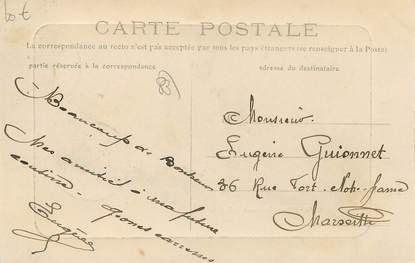 Lot
CARTE POSTALE
La correspondance au recto n'est pas acceptée par tous les pays étrangers (se renseigner à la Poste)
partie réservée à la correspondance
adresse du destinataire
Beaucoup de Bonheur
Mes amitiés à ma future
cousine. Grosses caresses
Monsieur
Eugène Guionnet
36 Rue Fort-Notre-Dame
Marseille